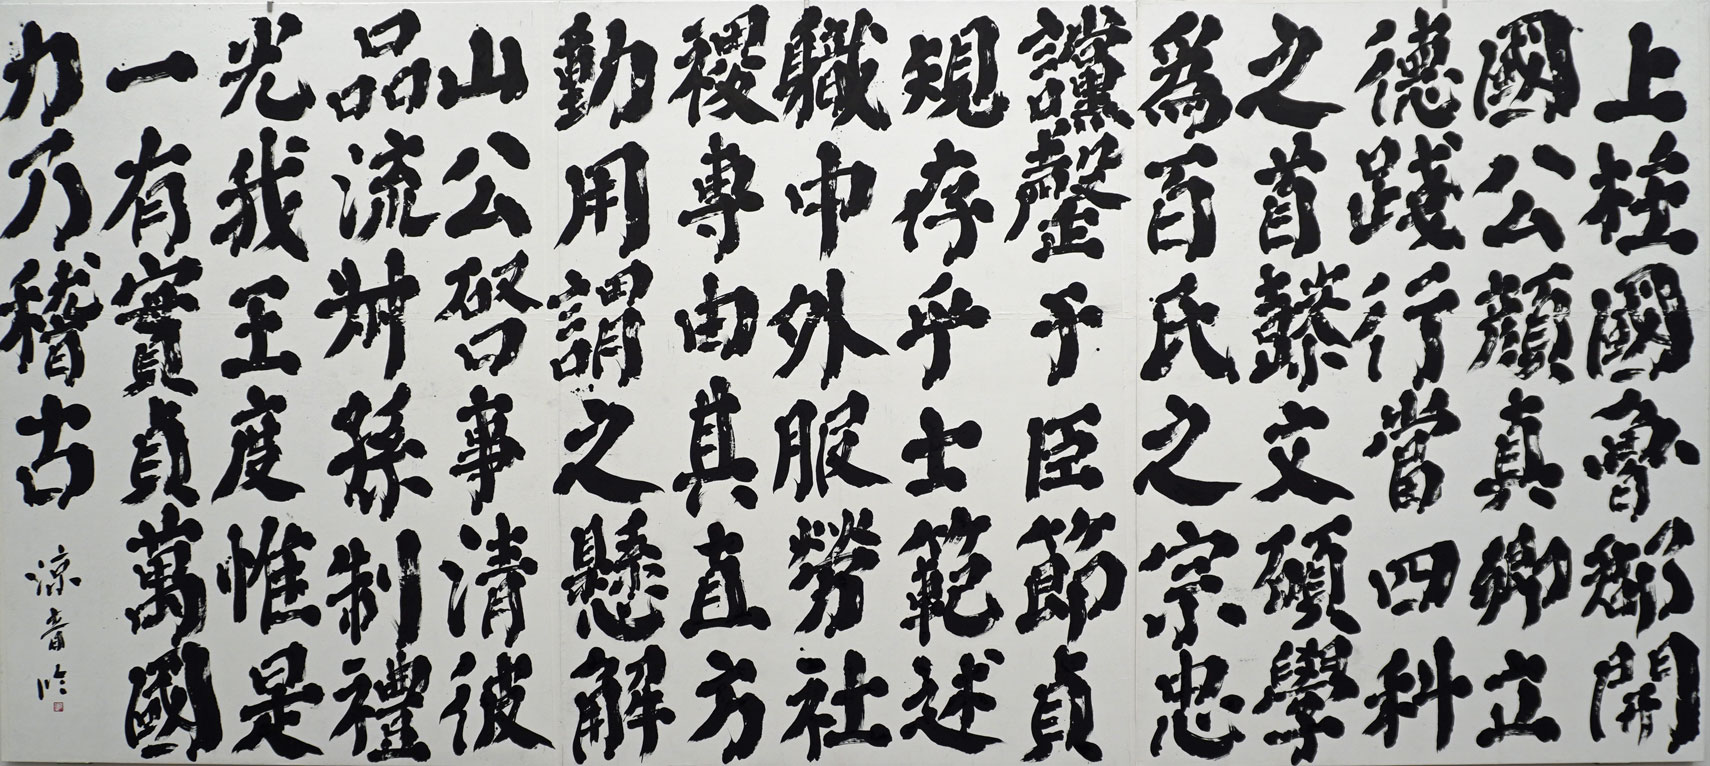 上柱國魯郡開
國公顏真卿立
德踐行當四科
之首懿文碩學
爲百氏之宗忠
讜罄于臣節貞
規存乎士範述
職中外服勞社
稷專由其直方
動用謂之懸解
山公啓事清彼
品流叔孫制禮
光我王度惟是
一有實貞萬國
力乃稽古